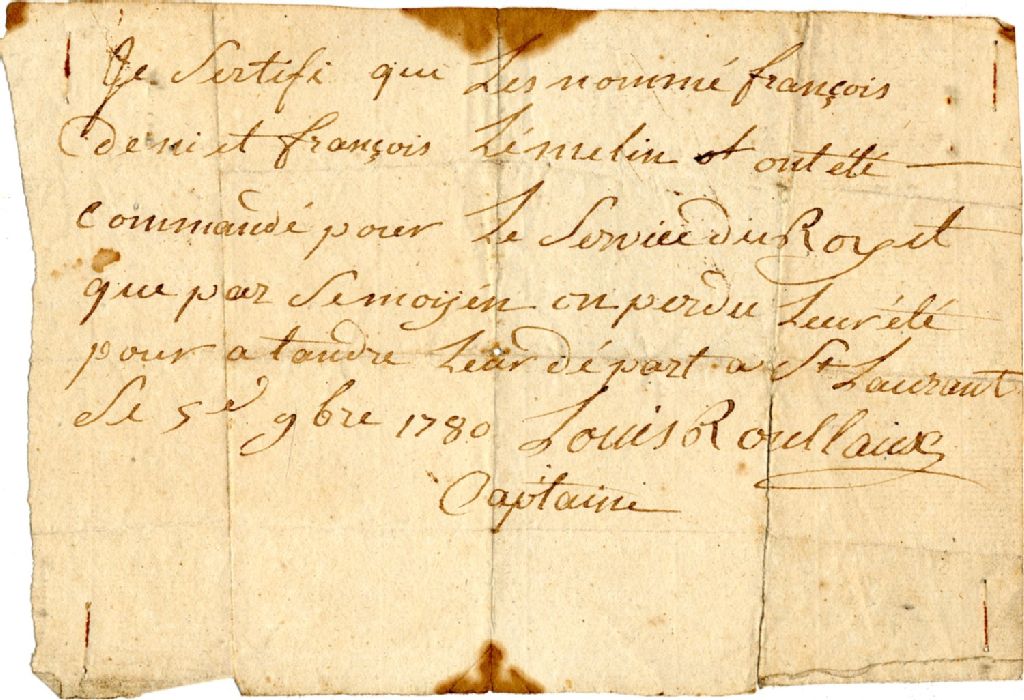 Je Sertifi que Les nommé françois
deni et françois Lémelin ont été
commandé pour Le Service du Roy et
que par Semoyén on perdu Leur été
pour atandre Leur départ a St Laurant
Se 5e 9bre 1780 Louis Roullaux
Captaine